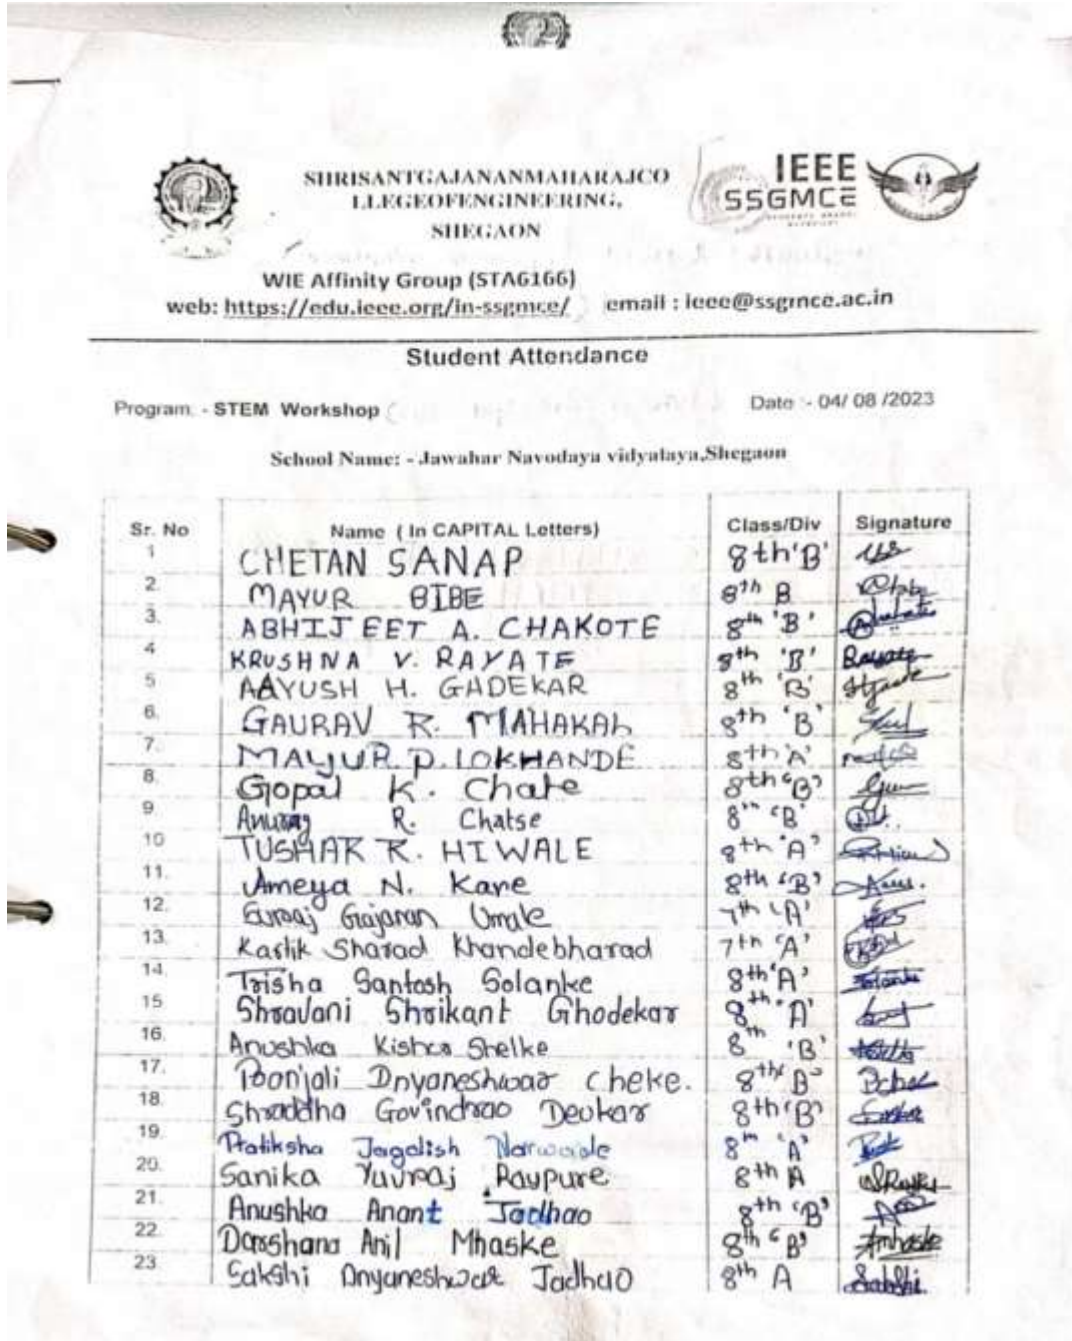 SHRISANTGAJANANMAHARAJCO
LLEGEOFENGINEERING,
SHEGAON
IEEE
SSGMCE
WIE Affinity Group (STA6166)
web: https://edu.ieee.org/in-ssgmce/ email : ieee@ssgmce.ac.in
Student Attendance
Program: - STEM Workshop Date :- 04/ 08 /2023
School Name: - Jawahar Navodaya vidyalaya,Shegaon
Sr. No Name ( In CAPITAL Letters) Class/Div Signature
1 CHETAN SANAP 8th 'B'
2. MAYUR BIBE 8th B
3. ABHIJEET A. CHAKOTE 8th 'B'
4 KRUSHNA V. RAYATE 8th 'B' Rayate
5 AAYUSH H. GADEKAR 8th 'B'
6. GAURAV R. MAHAKAL 8th 'B'
7. MAYUR D. LOKHANDE 8th 'A'
8. Gopal K. Chate 8th 'B'
9. Anurag R. Chatse 8th 'B
10 TUSHAR R. HIWALE 8th 'A'
11. Ameya N. Kane 8th 'B'
12. Gajanan Umale 7th 'A'
13. Kartik Sharad Khandebharad 7th 'A'
14. Trisha Santosh Solanke 8th 'A' Solanke
15 Shravani Shrikant Ghodekar 8th 'A'
16. Anushka Kishor Shelke 8th 'B'
17. Poonjali Dnyaneshwar Cheke. 8th B
18. Shraddha Govindrao Deokar 8th 'B'
19. Pratiksha Jagdish 8th 'A'
20. Sanika Yuvraj Raypure 8th A
21. Anushka Anant Jadhao 8th 'B'
22. Darshana Anil Mhaske 8th 'B' Amhaske
23 Sakshi Dnyaneshwar Jadhao 8th A Sakshi